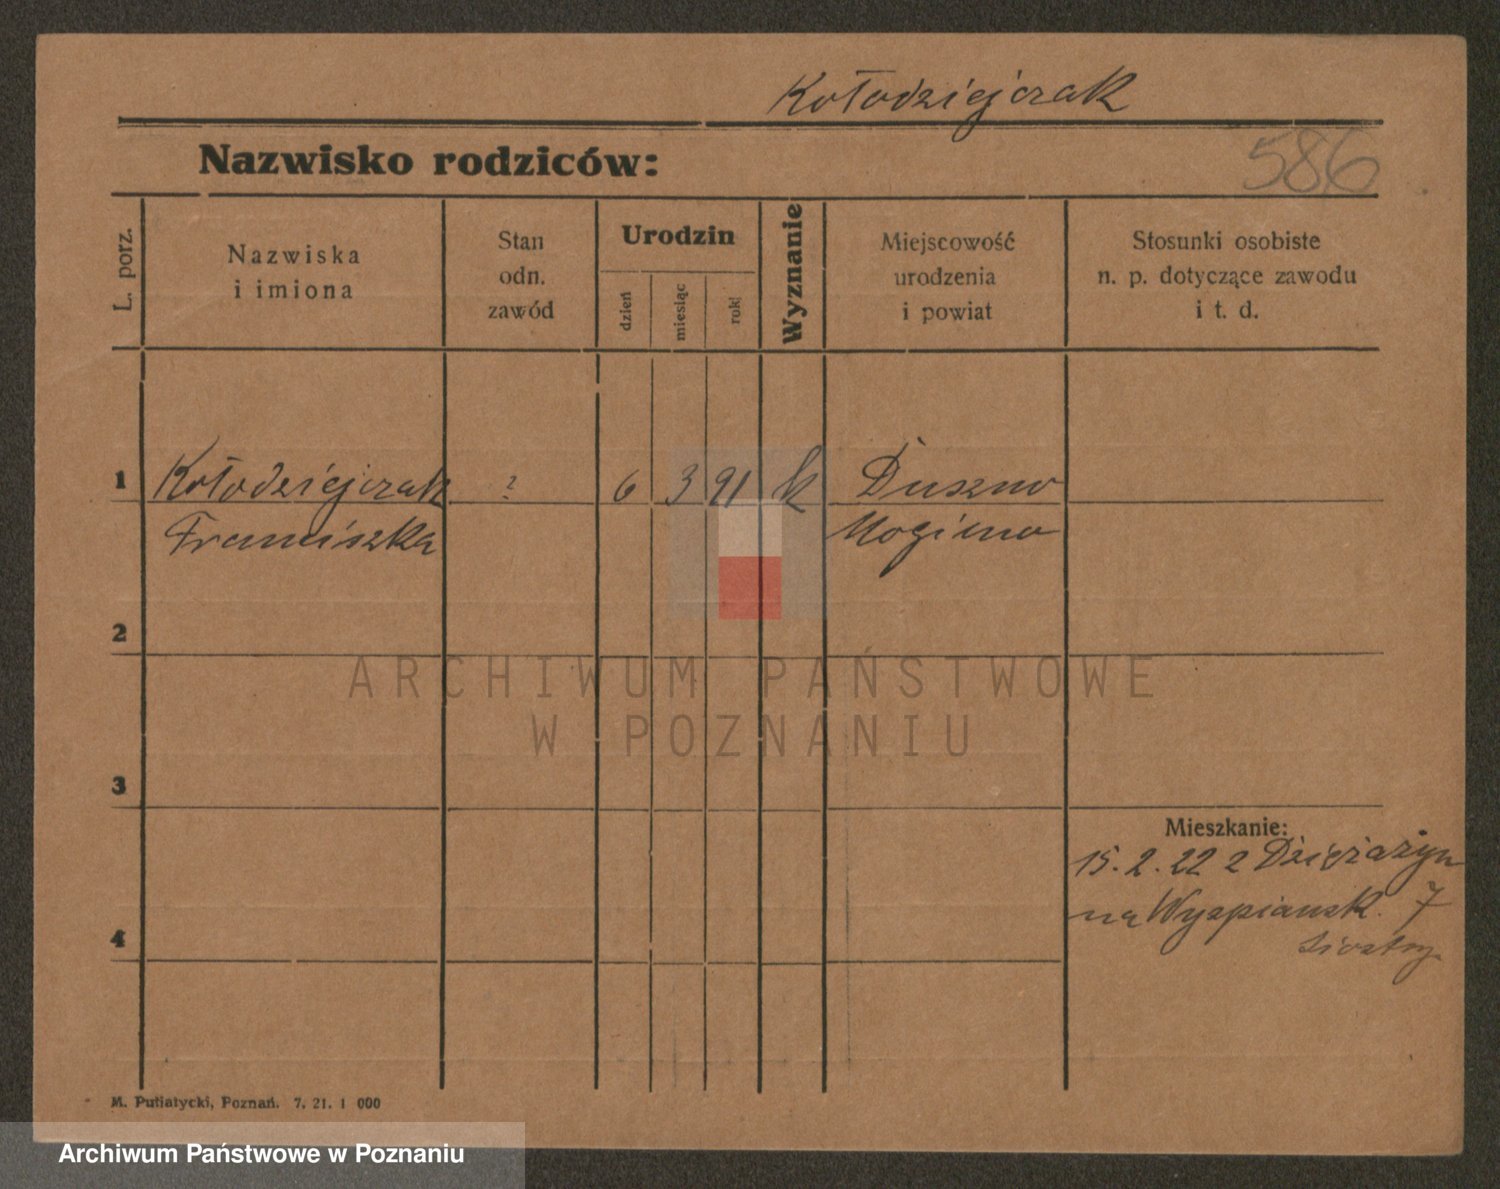 Kołodziejczak
Nazwisko rodziców:
586
L. porz.
Nazwiska
i imiona
Stan
odn.
zawód
Urodzin
dzień
miesiąc
rok
Wyznanie
Miejscowość
urodzenia
i powiat
Stosunki osobiste
n. p. dotyczące zawodu
i t. d.
1 Kołodziejczak ? 6 3 91 k Duszno
Franciszka Mogilno
2
ARCHIWUM PAŃSTWOWE
W POZNANIU
3
Mieszkanie:
15. 2. 22 z
na Wyspiansk. 7
4
M. Putiatycki, Poznań. 7. 21. 1 000
Archiwum Państwowe w Poznaniu